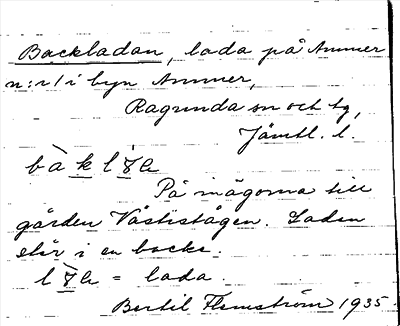 Backladan, lada på Ammer
n:r 1 i byn Ammer,
Ragunda sn och tg,
Jämtl. l.
På inägorna till
gården Västistågen. Ladan
står i en backe.
= lada.
Bertil Flemström 1935.